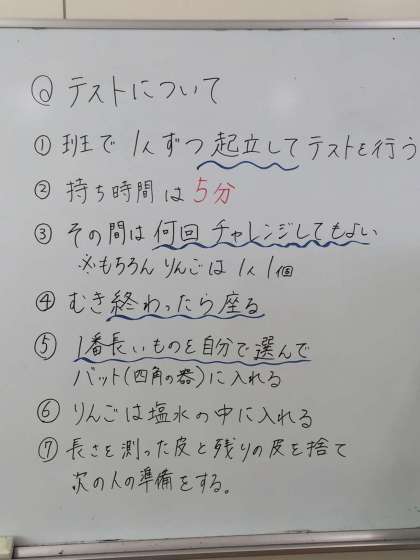 ◎ テストについて
① 班で 1人ずつ 起立して テストを行う
② 持ち時間は 5分
③ その間は 何回 チャレンジしてもよい
※もちろん りんごは 1人 1個
④ むき終わったら座る
⑤ 1番長いものを自分で選んで
バット(四角の器)に入れる
⑥ りんごは塩水の中に入れる
⑦ 長さを測った皮と残りの皮を捨て
次の人の準備をする。